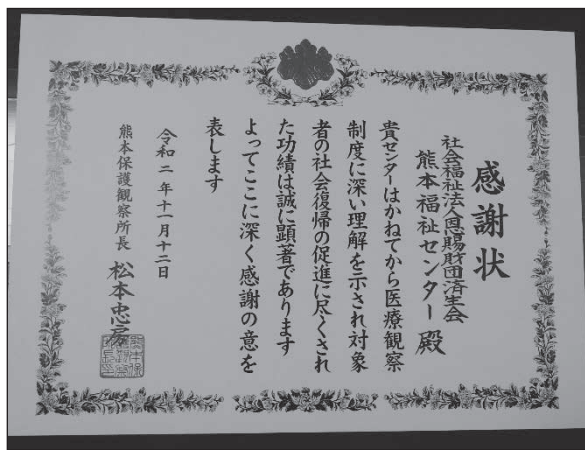 感謝状
社会福祉法人恩賜財団済生会
熊本福祉センター 殿
貴センターはかねてから医療観察
制度に深い理解を示され対象
者の社会復帰の促進に尽くされ
た功績は誠に顕著であります
よってここに深く感謝の意を
表します
令和二年十一月十二日
熊本保護観察所長 松本忠房